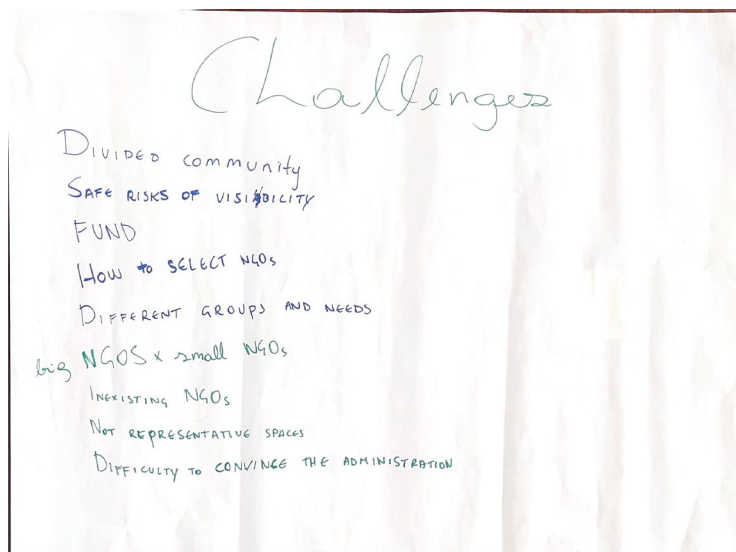 Challenges
DIVIDED community
SAFE RISKS OF VISIBILITY
FUND
HOW to SELECT NGOs
DIFFERENT GROUPS AND NEEDS
big NGOS x small NGOs
INEXISTING NGOs
NOT REPRESENTATIVE SPACES
DIFFICULTY TO CONVINCE THE ADMINISTRATION